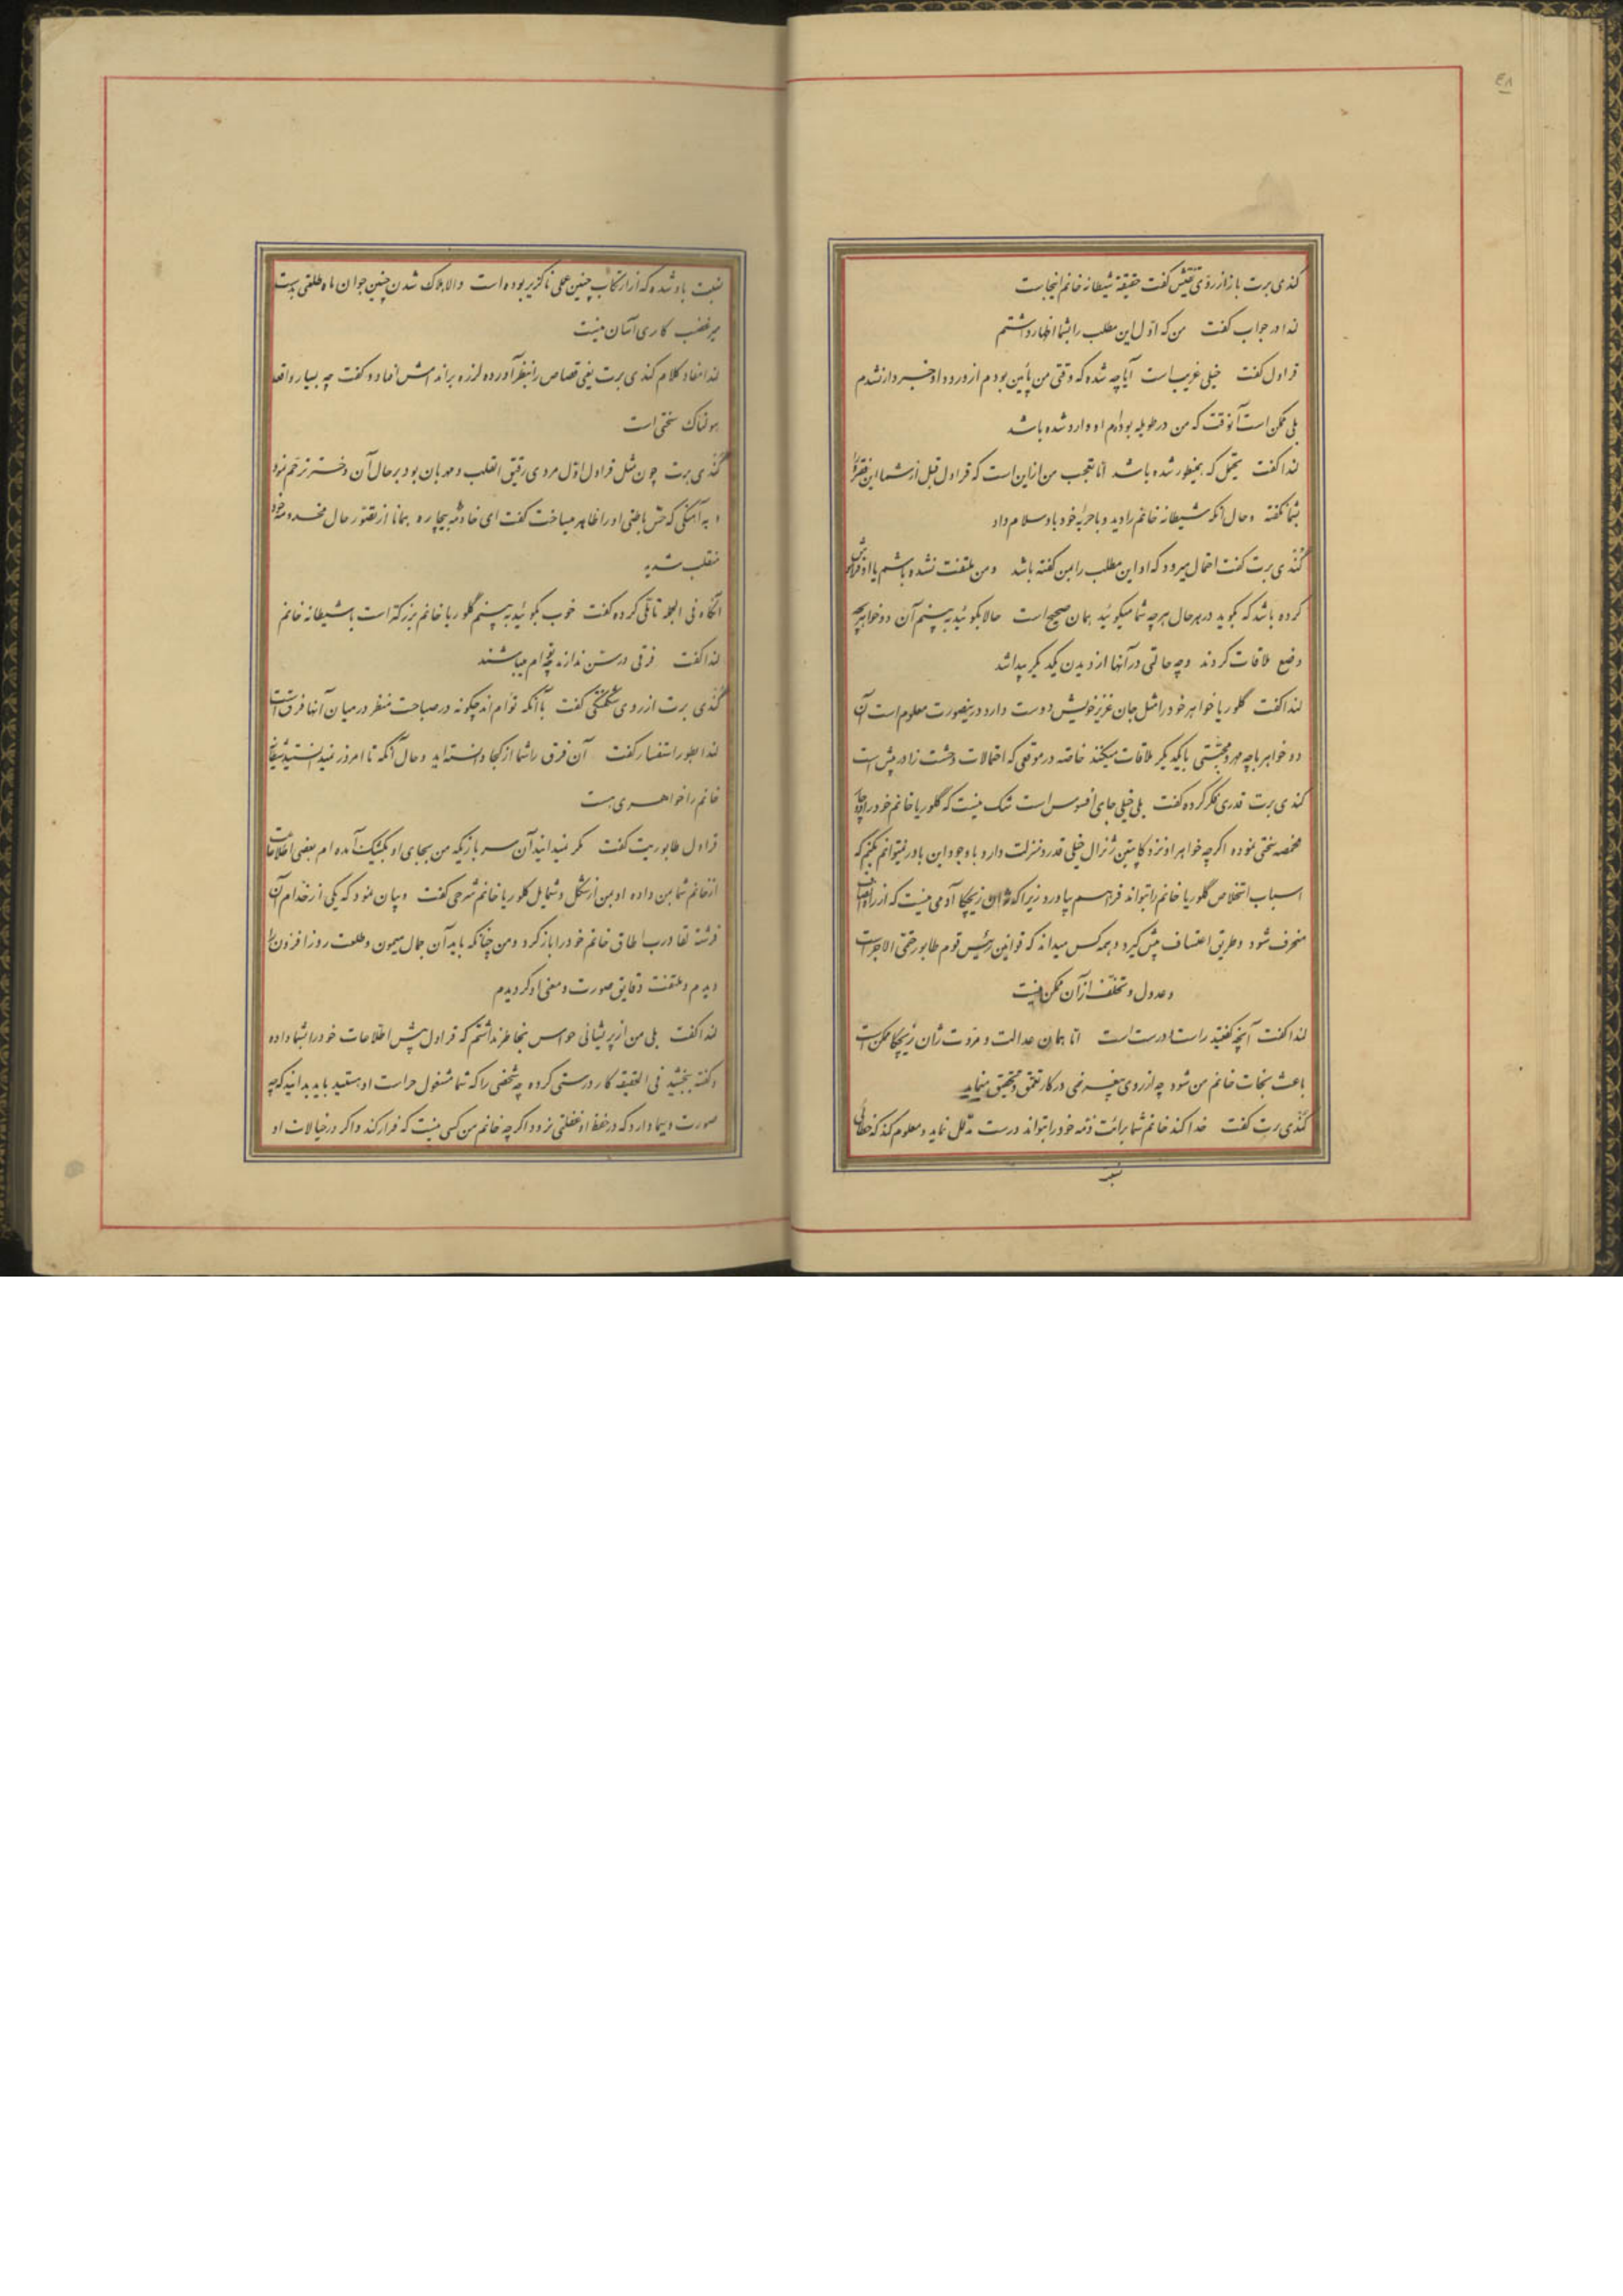 ۴۸
کندی برت باز از روی تفتیش گفت حقیقة شیطانه خانم اینجاست
لندا در جواب گفت من که اول این مطلب را بشما اظهار داشتم
قراول گفت خیلی غریب است آیا چه شده که وقتی من پائین بودم از ورود او خبردار نشدم
بلی ممکن است آنوقت که من در طویله بوده‌ام او وارد شده باشد
لندا گفت یحتمل که همینطور شده باشد اما تعجب من از این است که قراول قبل از شما این فقره را
بشما نگفته و حال آنکه شیطانه خانم را دید و با حربۀ خود باو سلام داد
کندی برت گفت احتمال میرود که او این مطلب را بمن گفته باشد و من ملتفت نشده باشم یا او فراموش
کرده باشد که بگوید در هر حال هر چه شما میگوئید همان صحیح است حالا بگوئید ببینم آن دو خواهر بچه
وضع ملاقات کردند و چه حالتی در آنها از دیدن یکدیگر پیدا شد
لندا گفت گلوریا خواهر خود را مثل جان عزیز خویش دوست دارد در ینصورت معلوم است آن
دو خواهر با چه مهر و محبتی با یکدیگر ملاقات میکنند خاصه در موقعی که احتمالات وحشت زا در پیش است
کندی برت قدری فکر کرده گفت بلی خیلی جای افسوس است شک نیست که گلوریا خانم خود را دچار
مخمصه سختی نموده اگر چه خواهر او نزد کاپیتن ژنرال خیلی قدر و منزلت دارد با وجود این باور نمیتوانم بکنم که
اسباب استخلاص گلوریا خانم را بتواند فراهم بیاورد زیرا که ژان زیچکا آدمی نیست که از راه انصاف
منحرف شود و طریق اعتساف پیش گیرد و همه کس میداند که قوانین رئیس قوم طابور حتمی الاجراست
و عدول و تخلف از آن ممکن نیست
لندا گفت آنچه گفتید راست و درست است اما همان عدالت و مروت ژان زیچکا ممکن است
باعث نجات خانم من شود چه از روی بیغرضی در کار تعمق و تحقیق مینماید
کندی برت گفت خدا کند خانم شما برائت ذمه خود را بتواند درست مدلل نماید و معلوم کند که خطائی
نسبت باو شده که از ارتکاب چنین عملی ناگزیر بوده است والا هلاک شدن چنین جوان ماه طلعتی بدست
میرغضب کاری آسان نیست
لندا مفاد کلام کندی برت یعنی قصاص را بنظر آورده لرزه بر اندامش افتاد و گفت چه بسیار واقعه
هولناک سختی است
کندی برت چون مثل قراول اول مردی رقیق القلب و مهربان بود بر حال آن دختر ترحم نمود
و به آهنگی که حسّ باطنی او را ظاهر میساخت گفت ای خادمه بیچاره همانا از تصور حال مخدومه خود
منقلب شدید
آنگاه فی الجمله تأملی کرده گفت خوب بگوئید ببینم گلوریا خانم بزرگتر است یا شیطانه خانم
لندا گفت فرقی در سن ندارند توأم میباشند
کندی برت از روی شگفتگی گفت با آنکه توأم اند چگونه در صباحت منظر در میان آنها فرق است
لندا بطور استفسار گفت آن فرق را شما از کجا دانسته‌اید و حال آنکه تا امروز نمیدانستید شیطانه
خانم را خواهری هست
قراول طابوریت گفت مگر نمیدانید آن سربازیکه من بجای او بکشیک آمده‌ام بعضی اطلاعات
از خانم شما بمن داده او بمن از شکل و شمایل گلوریا خانم شرحی گفت و بیان نمود که یکی از خدام آن
فرشته لقا درب اطاق خانم خود را باز کرد و من چنانکه باید آن جمال میمون و طلعت روز افزون را
دیدم و ملتفت دقایق صورت و معنی او گردیدم
لندا گفت بلی من از پریشانی حواس بخاطر نداشتم که قراول پیش اطلاعات خود را بشما داده
و گفته ببخشید فی الحقیقه کار درستی کرده چه شخصی را که شما مشغول حراست او هستید باید بدانید که چه
صورت و سیما دارد که در حفظ او غفلتی نرود اگر چه خانم من کسی نیست که فرار کند و اگر در خیالات او